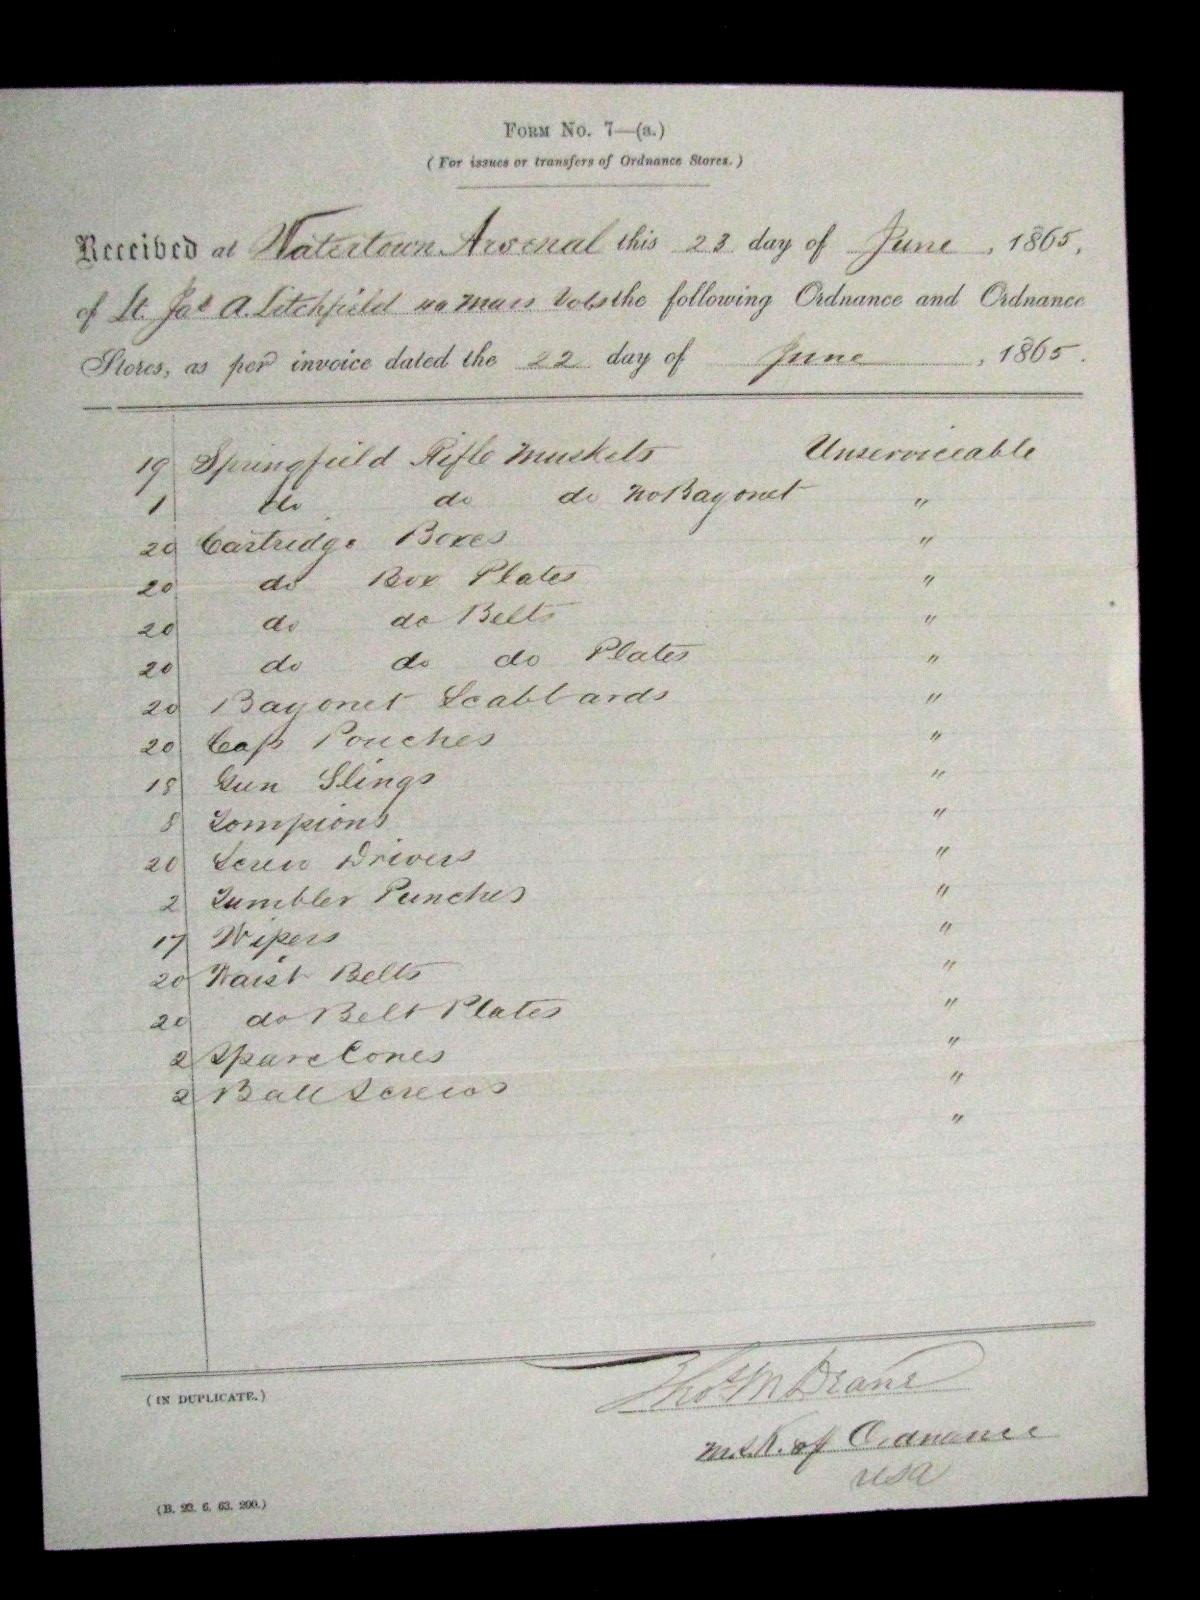 Form No. 7—(a.)
(For issues or transfers of Ordnance Stores.)
Received at Watertown Arsenal this 23 day of June, 1865,
of Lt. Jas A. Litchfield Mass Vols the following Ordnance and Ordnance
Stores, as per invoice dated the 22 day of June, 1865.
19 Springfield Rifle Muskets Unserviceable
1 do do do no Bayonet "
20 Cartridge Boxes "
20 do Box Plates "
20 do do Belts "
20 do do do Plates "
20 Bayonet Scabbards "
20 Cap Pouches "
18 Gun Slings "
8 Tompions "
20 Screw Drivers "
2 Tumbler Punches "
17 Wipers "
20 Waist Belts "
20 do Belt Plates "
2 Spare Cones "
2 Ball Screws "
"
(IN DUPLICATE.)
Thos M Deane
M.S.K. of Ordnance
USA
(B. 23. 6. 63. 200.)